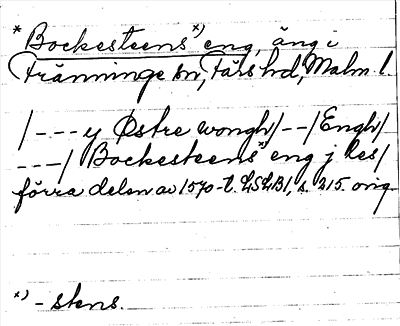 * Bockesteens*) eng, äng i
Tränninge sn, Färs hd, Malm. l.
/---y Østre wongh/--/Engh/
---/ Bockesteens* eng j les/
förra delen av 1570-t. LSLB1, s. 215. orig.
*) - stens.